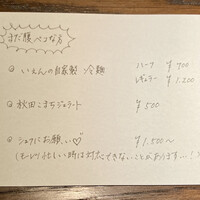 まだ腹ペコな方
◎ いえんの自家製 冷麺 ハーフ ¥700
レギュラー ¥1,200
◎ 秋田こまちジェラート ¥500
◎ シェフにお願い♡ ¥1,500〜
忙しい時は対応できないことがあります…！